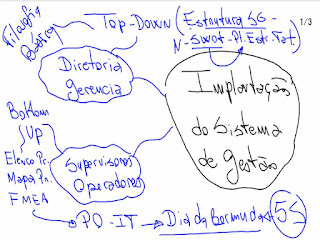 Filosofia
Básica
Top-Down
(Estrutura SG
N-Swot-Pl.Estr.Tat.)
1/3
Diretoria
gerencia
Implantação
do Sistema
de gestão
Bottom
Up
Elenco Pr.
Mapa Pr.
FMEA
Supervisores
Operadores
PO-IT
Dia da Bermuda
5S